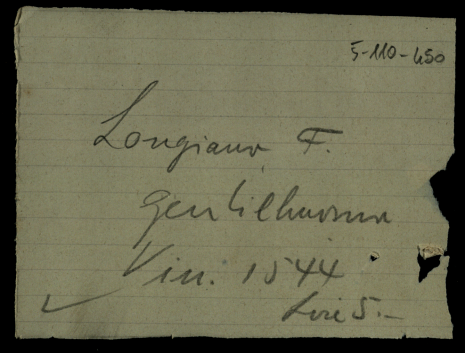 5-110-450
Longiano F.
gentilhuomo
Vin. 1544
Lire 5.-